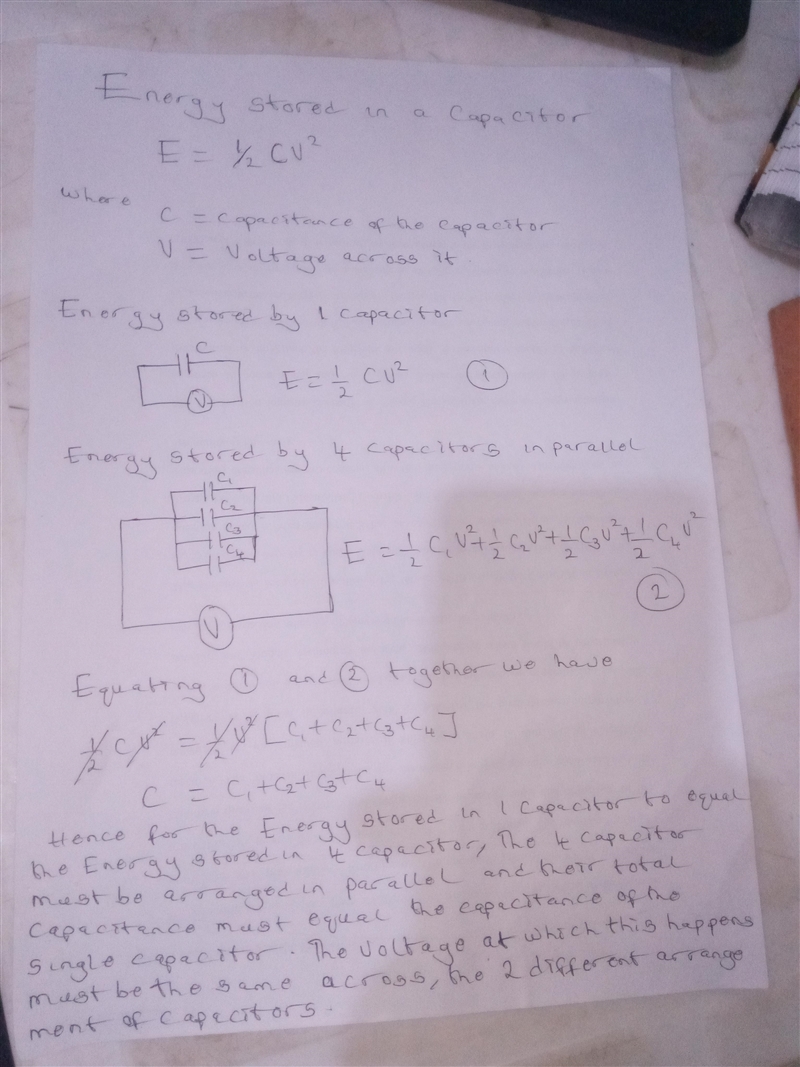 Energy stored in a Capacitor
E = ½ CV²
where
C = Capacitance of the capacitor
V = Voltage across it.
Energy stored by 1 Capacitor
C
V
E = 1/2 CV² ①
Energy stored by 4 Capacitors in parallel
C₁
C₂
C₃
C₄
V
E = 1/2 C₁V² + 1/2 C₂V² + 1/2 C₃V² + 1/2 C₄V²
②
Equating ① and ② together we have
1/2 CV² = 1/2 V² [C₁ + C₂ + C₃ + C₄]
C = C₁ + C₂ + C₃ + C₄
Hence for the Energy stored in 1 Capacitor to equal
the Energy stored in 4 capacitor, The 4 capacitor
must be arranged in parallel and their total
Capacitance must equal the capacitance of the
Single capacitor. The Voltage at which this happens
must be the same across, the 2 different arrange
ment of Capacitors.